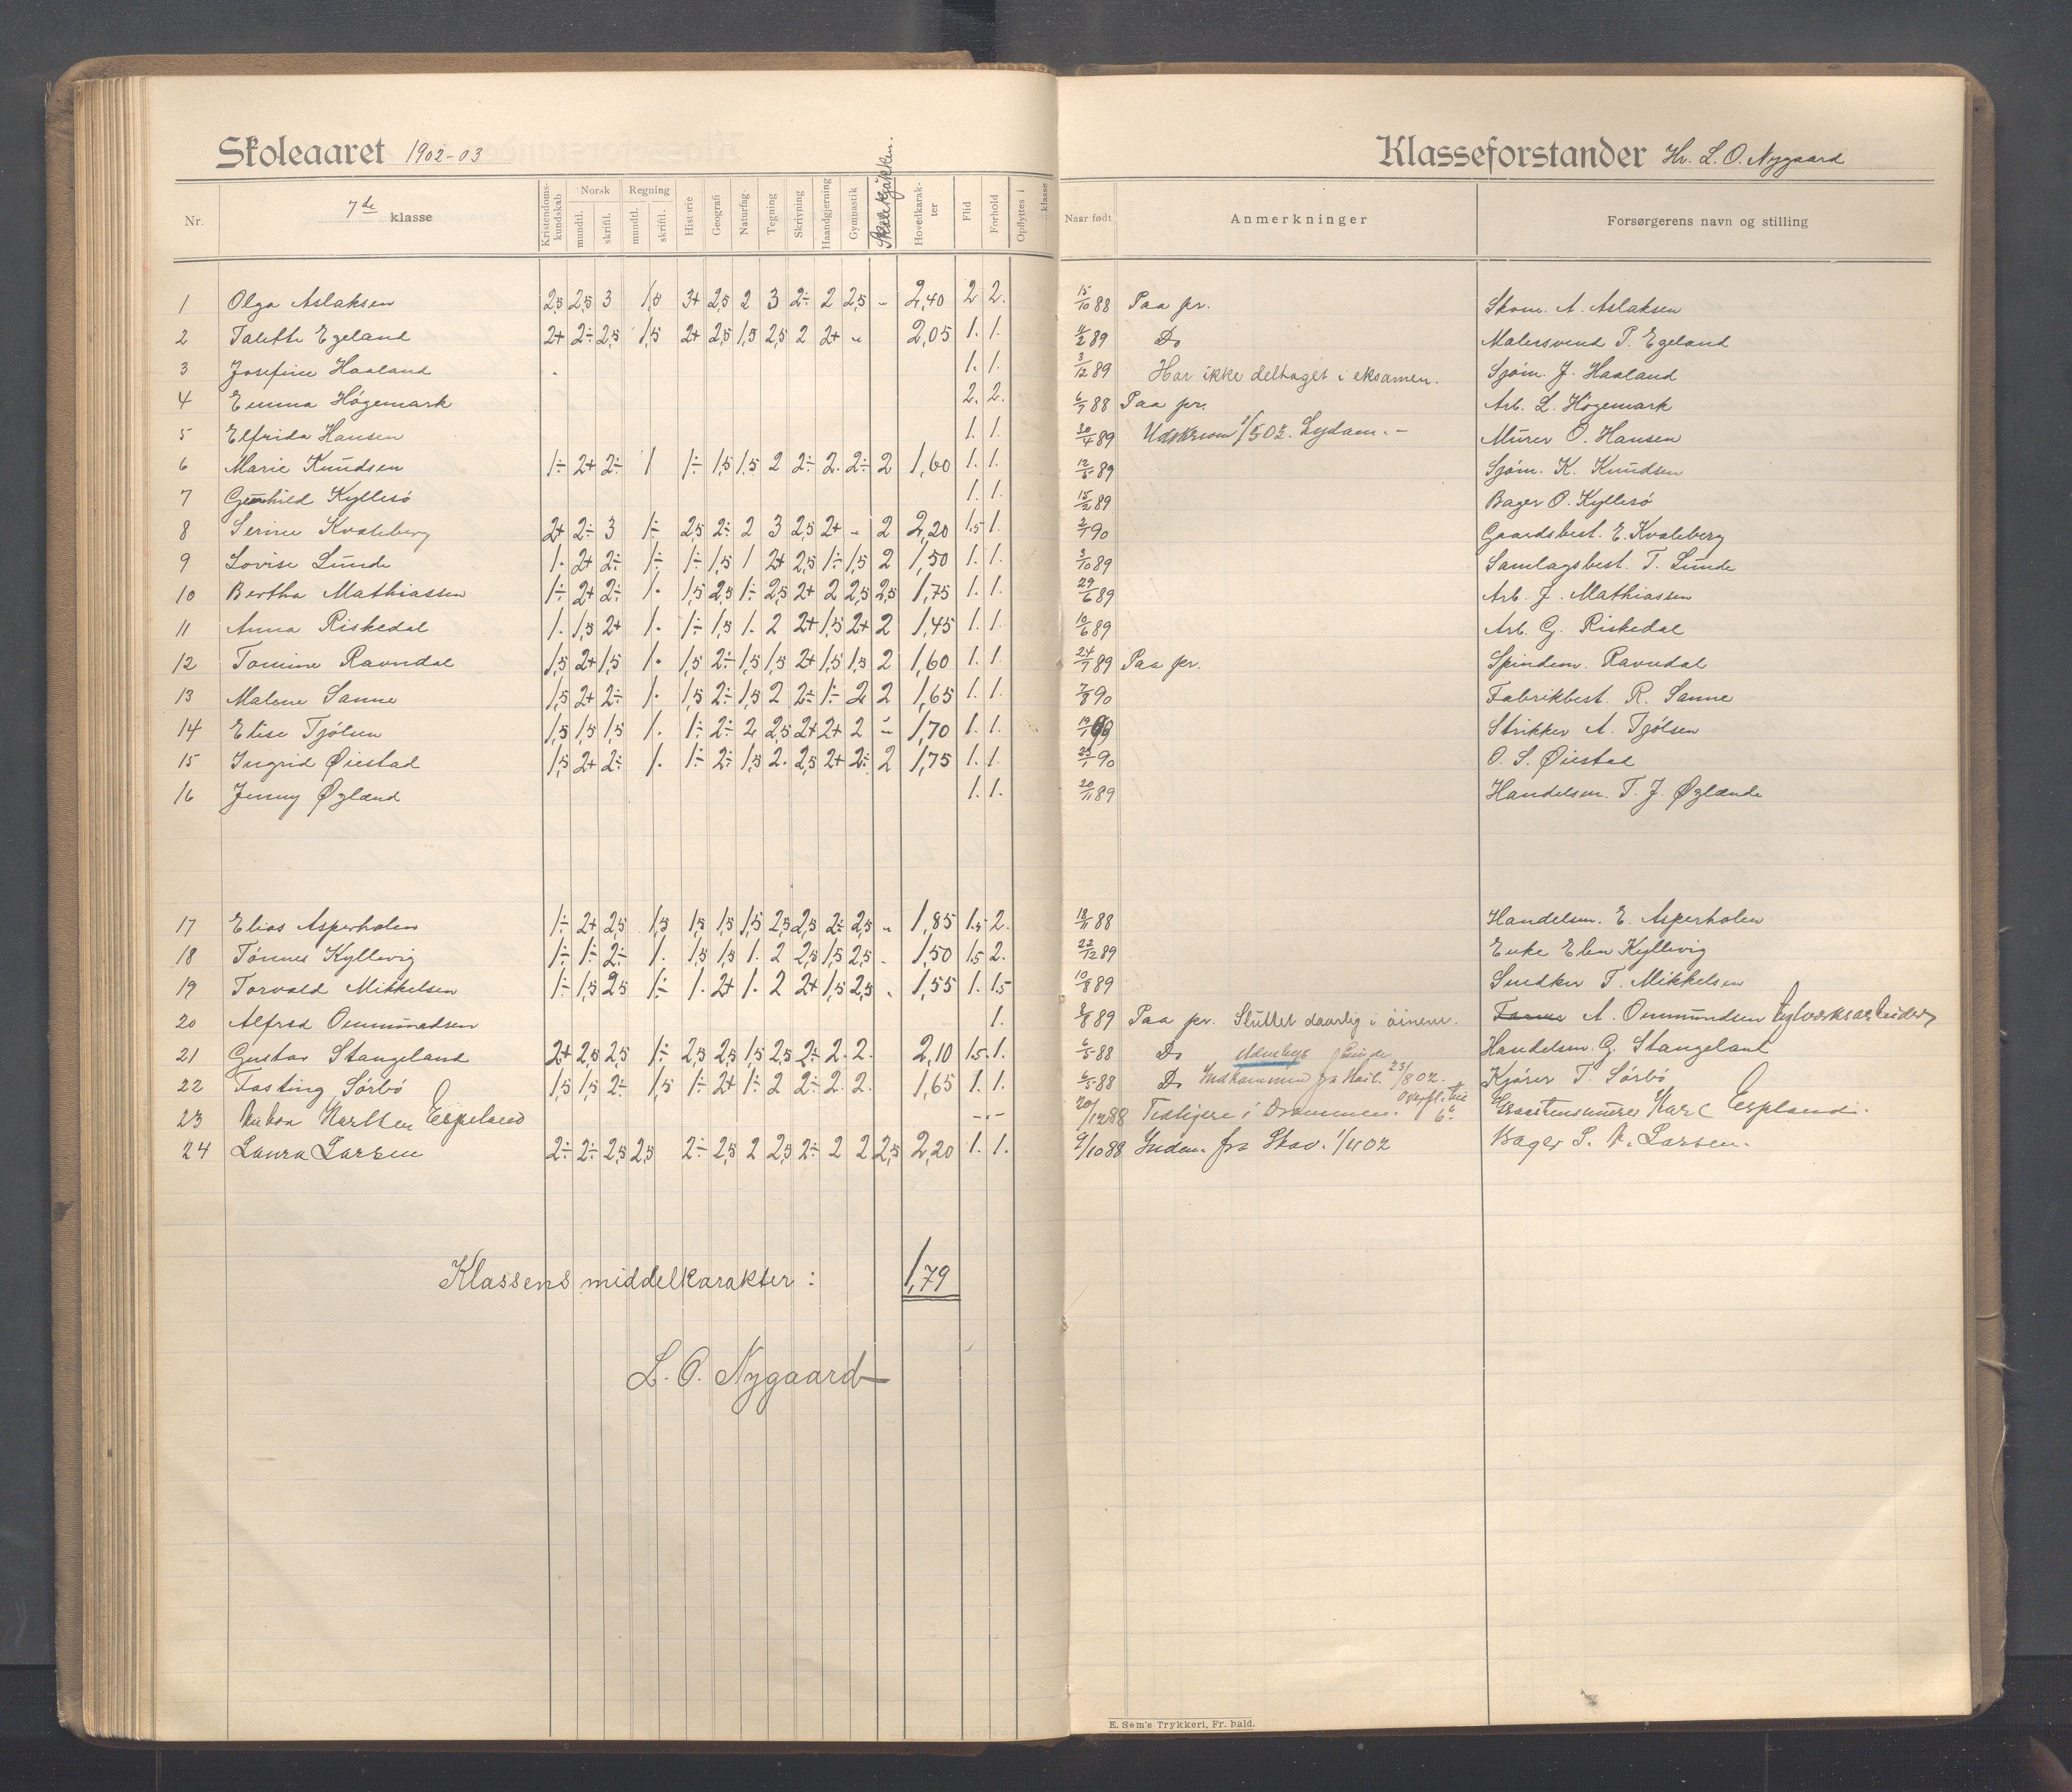 Skoleaaret 1902-03
Klasseforstander Hr. L. O. Nygaard
Nr. 7de klasse Kristendoms-kundskab Norsk mundtl. skriftl. Regning mundtl. skriftl. Historie Geografi Naturfag Tegning Skrivning Haandgjerning Gymnastik Skolekjøkken. Hovedkarak-ter Flid Forhold Opflyttes i klasse
Naar født Anmerkninger Forsørgerens navn og stilling
1 Olga Aslaksen 2,5 2,5 3 1,5 3+ 2,5 2 3 2÷ 2 2,5 " 2,40 2 2. 15/10 88 Paa pr. Skom. A. Aslaksen
2 Talette Egeland 2+ 2÷ 2,5 1,5 2+ 2,5 1,5 2,5 2 2+ " 2,05 1. 1. 4/2 89 Do Malersvend T. Egeland
3 Josefine Haaland 1. 1. 3/12 89 Har ikke deltaget i eksamen. Sjøm. J. Haaland
4 Emma Høgemark 2. 2. 6/7 88 Paa pr. Arb. L. Høgemark
5 Elfrida Hansen 1. 1. 20/4 89 Udskreven 1/5 02. Murer O. Hansen
6 Marie Knudsen 1÷ 2+ 2÷ 1 1÷ 1,5 1.5 2 2÷ 2. 2÷ 2 1,60 1. 1. 12/5 89 Sjøm. K. Knudsen
7 Gunhild Kyllesø 1. 1. 15/2 89 Bager O. Kyllesø
8 Serine Kvaleberg 2+ 2÷ 3 1÷ 2,5 2÷ 2 3 2,5 2+ " 2 2,20 1.5 1. 2/1 90 Gaardsbest. E. Kvaleberg
9 Lovise Lunde 1. 2+ 2÷ 1÷ 1÷ 1,5 1 2+ 2,5 1÷ 1,5 2 1,50 1. 1. 3/10 89 Samlagsbest. T. Lunde
10 Bertha Mathiassen 1÷ 2+ 2÷ 1. 1,5 2,5 1÷ 2,5 2+ 2 2,5 2,5 1,75 1. 1. 29/6 89 Arb. J. Mathiassen
11 Anna Riskedal 1. 1,5 2+ 1. 1÷ 1,5 1. 2 2+ 1,5 2+ 2 1,45 1. 1. 10/6 89 Arb. G. Riskedal
12 Tomine Ravndal 1,5 2+ 1,5 1. 1,5 2÷ 1,5 1,5 2+ 1,5 1,5 2 1,60 1. 1. 24/7 89 Paa pr. Spindem. Ravndal
13 Malene Sanne 1,5 2+ 2÷ 1. 1,5 2÷ 1,5 2 2÷ 1÷ 2 2 1,65 1. 1. 7/8 90 Fabrikbest. R. Sanne
14 Elise Tjølsen 1,5 1,5 1,5 1. 1÷ 2÷ 2 2,5 2+ 2+ 2 " 1,70 1. 1. 19/1 Strikker A. Tjølsen
15 Ingrid Øiestad 1,5 2+ 2÷ 1. 1÷ 2÷ 1,5 2. 2,5 2+ 2÷ 2 1,75 1. 1. 25/1 90 O. S. Øiestad
16 Jenny Øglænd 1. 1. 20/11 89 Handelsm. T. J. Øglænde
17 Elias Asperholen 1÷ 2+ 2,5 1,5 1,5 1,5 1,5 2,5 2,5 2÷ 2,5 " 1,85 1.5 2. 18/11 88 Handelsm. E. Asperholen
18 Tønnes Kyllevig 1÷ 1÷ 2÷ 1. 1,5 1,5 1. 2 2,5 1,5 2,5 . 1,50 1.5 2. 22/12 89 Enke Elen Kyllevig
19 Torvald Mikkelsen 1÷ 1,5 2,5 1÷ 1. 2+ 1. 2 2+ 1,5 2,5 . 1,55 1. 1.5 10/8 89 Snedker T. Mikkelsen
20 Alfred Ommundsen 1. 8/8 89 Paa pr. Sluttet daarlig i øinene. A. Ommundsen Teglverksarbeider
21 Gustav Stangeland 2+ 2,5 2,5 1÷ 2,5 2,5 1,5 2,5 2÷ 2. 2. 2,10 1.5. 1. 6/5 88 Do Handelsm. G. Stangeland
22 Fasting Sørbø 1,5 1,5 2÷ 1,5 1÷ 2+ 1÷ 2 2÷ 2. 2. 1,65 1. 1. 6/5 88 Do Indkommen fra 23/8 02. Kjører T. Sørbø
23 Karlsen Espeland -.- 20/12 88 Tidligere i Drammen. Overfl. til 6te Karl Espeland.
24 Laura Larsen 2÷ 2÷ 2,5 2,5 2÷ 2,5 2 2,5 2÷ 2 2 2,5 2,20 1. 1. 9/10 88 Indm. fra Stav. 1/4 02 Bager S. A. Larsen.
Klassens middelkarakter: 1,79
L. O. Nygaard
E. Sem's Trykkeri, Fr. hald.